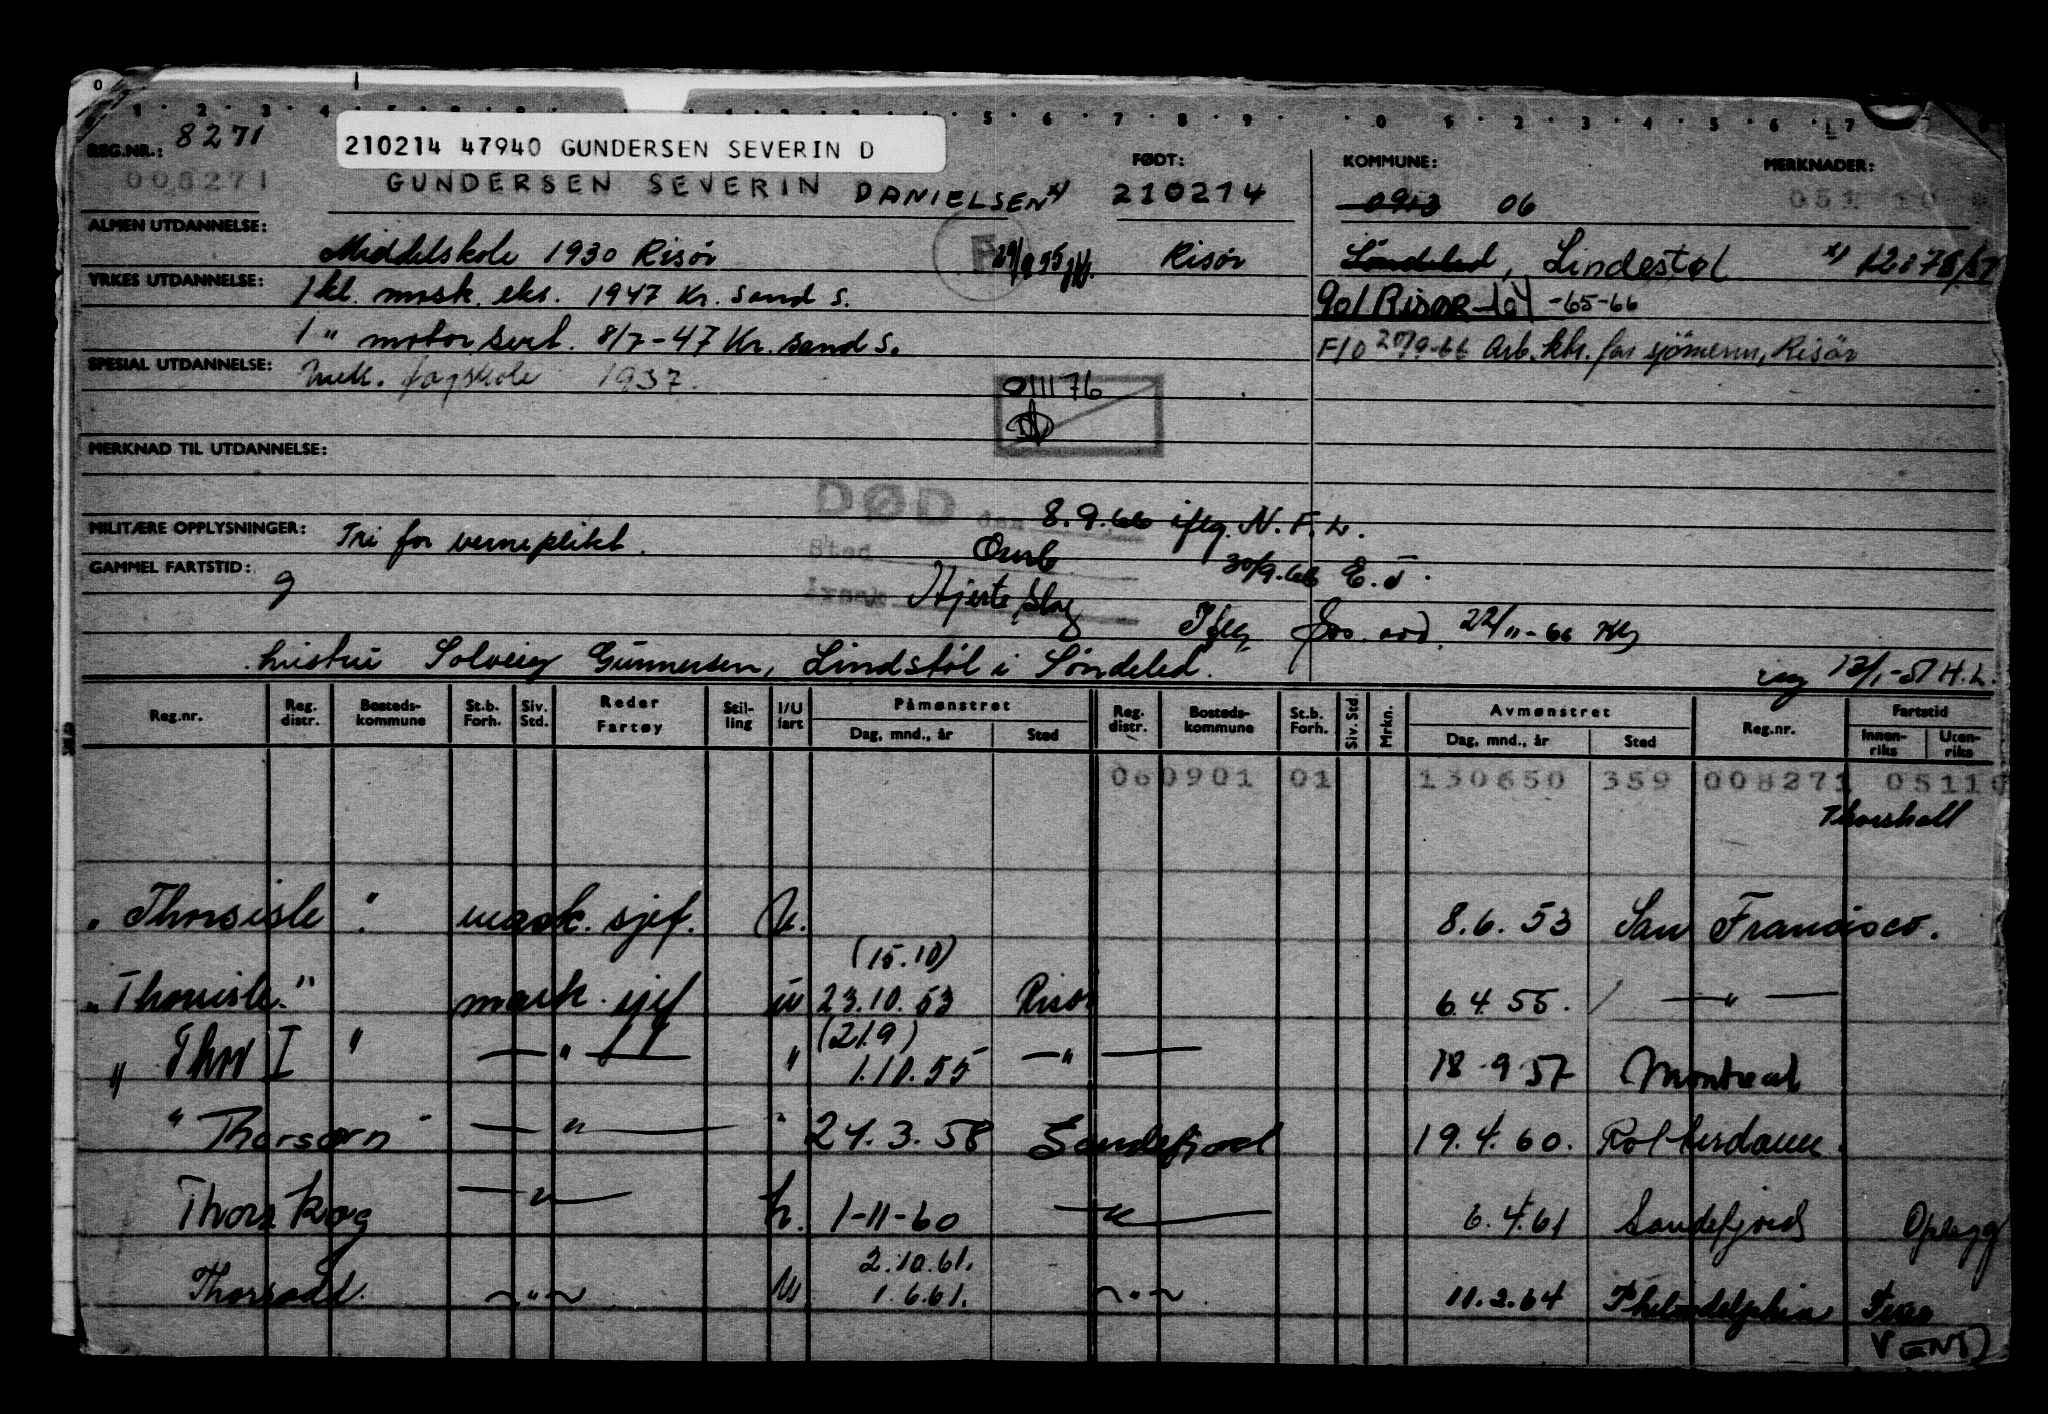 REG.NR.: 8271
008271
210214 47940 GUNDERSEN SEVERIN D
GUNDERSEN SEVERIN DANIELSEN x)
FØDT:
210214
KOMMUNE:
0913 06
MERKNADER:
051
ALMEN UTDANNELSE: Middelskole 1930 Risør
Risør
Søndeled, Lindestøl
YRKES UTDANNELSE: 1 kl. mask. eks. 1947 Kr. sand S.
901 RISØR -64 -65-66
1 " motor sert. 8/7-47 Kr. sand S.
F/O 20/9-66 Arb. ktr. for sjømenn, Risør
SPESIAL UTDANNELSE: Mek. fagskole 1937.
011176
MERKNAD TIL UTDANNELSE:
DØD den 8.9.66 iflg. N.F.L.
MILITÆRE OPPLYSNINGER: Fri for verneplikt.
Sted Omb 30/9-66 E.J.
GAMMEL FARTSTID: 9
Hjerteslag Iflg. 22/11-66
hustru Solveig Gunnersen, Lindstøl i Søndeled.
12/1-51 H.L.
Reg.nr. Reg. distr. Bosteds-kommune St.b. Forh. Siv. Std. Reder Fartøy Stil-ling I/U fart Påmønstret Dag, mnd., år Sted Reg. distr. Bosteds-kommune St.b. Forh. Siv. Std Mrkn. Avmønstret Dag, mnd., år Sted Reg.nr. Fartstid Innen-riks Uten-riks
060901 01 130650 359 008271 05110
Thorshall
" Thorsisle " mask. sjef. U. 8.6.53 San Francisco.
(15.10)
" Thorsisle " mask. sjef u 23.10.53 Risør 6.4.55. — " —
(21.9)
" Thor I " — " — " 1.10.55 — " — 18.9.57 Montreal
" Thorsørn " — " — " 24.3.58 Sandefjord 19.4.60. Rotterdam.
Thorskog — " — u. 1-11-60 — " — 6.4.61 Sandefjord Oplegg
2.10.61.
Thorsodd. — " — U 1.6.61. — " — 11.2.64 Philadelphia Ferie
VENT)